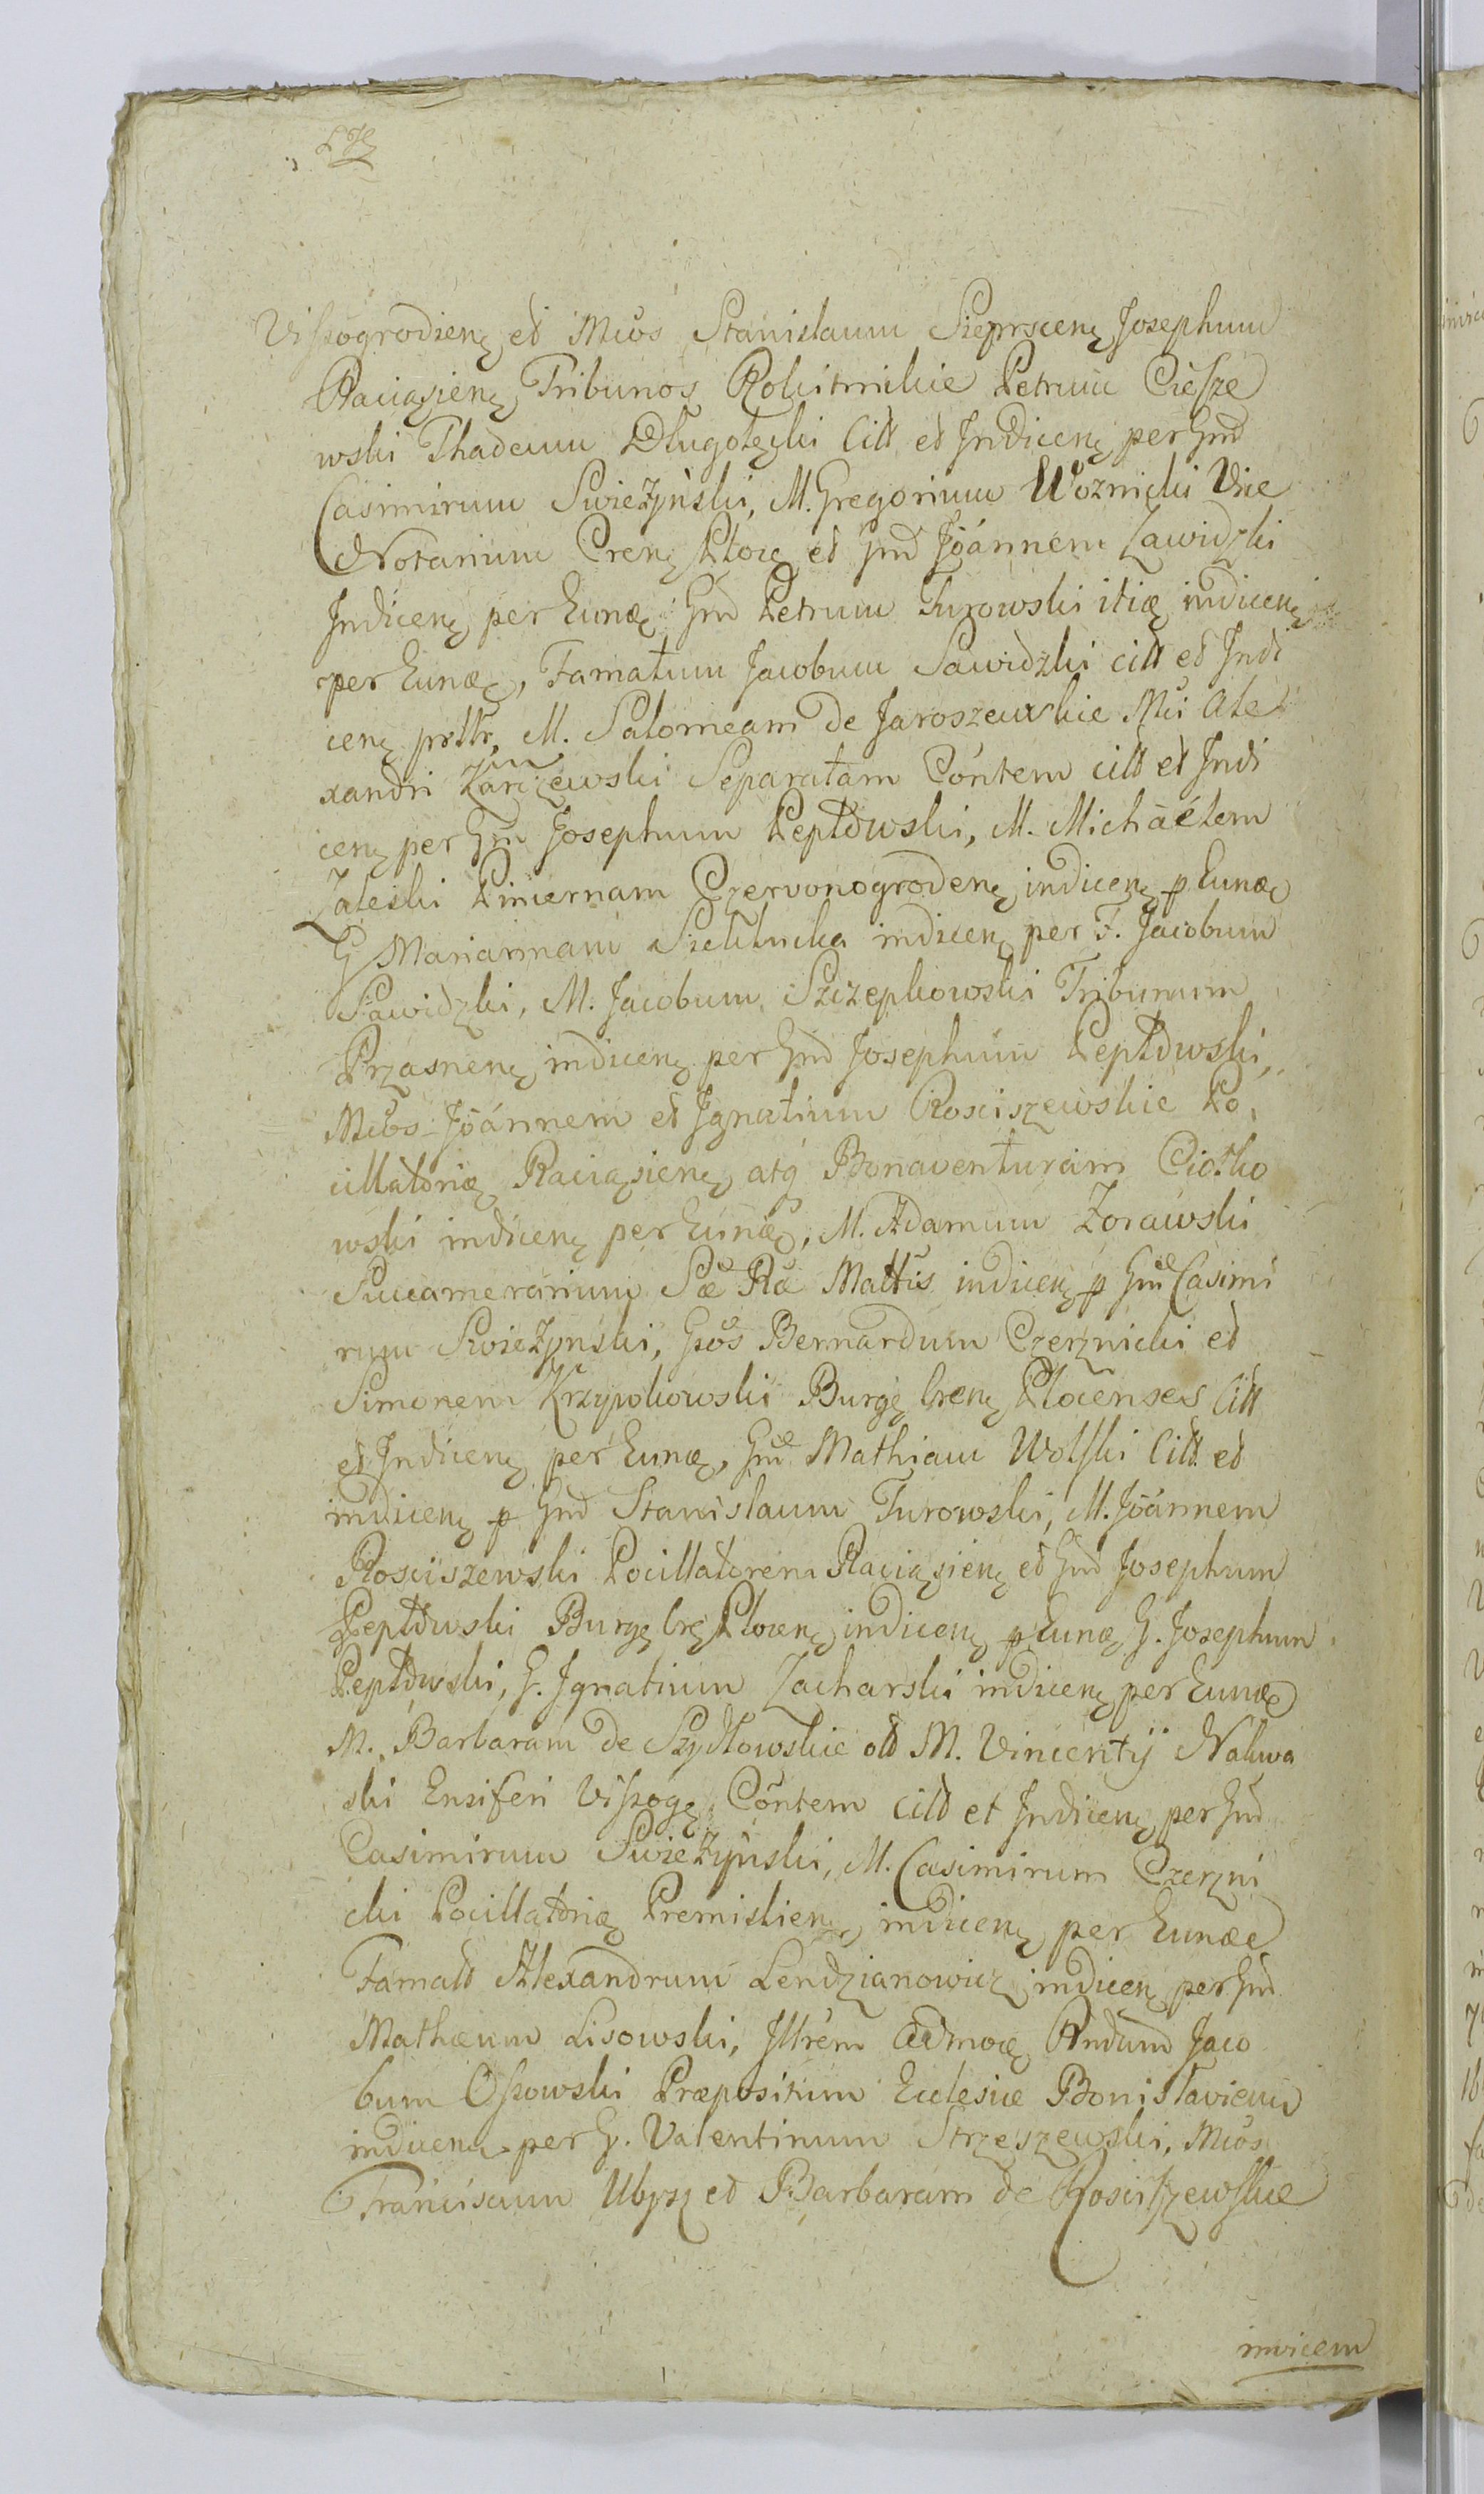 Vissogrodienę et Mcos Stanislaum Sieprscenę Josephum
Raciąsienę Tribunos Rokitnickie Petrum Ciesze
wski Thadeum Długołęcki Citt et Indicenę per Gnd
Casimirum Swieżyński, M. Gregorium Woznicki Vice
Notarium Crenę Płocę et Gnd Joánnem Zawidzki
Indicenę per Eunæ, Gnd Petrum Turowski itię indicenę
per Eunæ, Famatum Jacobum Sawidzki citt et Indi
cenę prttr, M. Salomeam de Jaroszewskie Mci Ale
xandri Karczewski Separatam Cóntem citt et Indi
cenę per Gnd Josephum Pepłowski, M. Michaélem
Zaleski Pincernam Czerwonogrodenę indicenę p Eunæ
G Mariannam indicenę per F. Jacobum
Sawidzki, M. Jacobum Szczepkowski Tribunum
Przasnenę indicenę per Gnd Josephum Pepłowski,
Mcos Joánnem et Ignatium Rosciszewskie Po,
cillatorię Raciąsienę atq Bonaventuram Ciołko
wski indicenę per Eunæ, M. Adamum Zorawski
Succamerarium Sæ Ræ Mattis indicenę p Gnd Casimi
rum Swieżynski, Gsos Bernardum Czerznicki et
Simonem Krzywkowski Burgę Crenę Plocenses Citt
et Indicenę per Eunæ, Gnd Mathiam Wolski Citt et
indicenę p Gnd Stanislaum Turowski, M. Joánnem
Rosciszewski Pocillatorem Raciąsienę et Gnd Josephum
Pepłowski Burgę Crę Plocenę indicenę p Eunæ G. Josephum
Pepłowski, G. Ignatium Zacharski indicenę per Eunæ
M. Barbaram de Szydłowskie olt M. Vincentij Nakwa
ski Ensiferi Vissogę Cóntem citt et Indicenę per Gnd
Casimirum Swieżyński, M. Casimirum Czerzni
cki Pocillatorię Premislienę indicenę per Eunæ
Famatt Alexandrum Lendzianowicz indicenę per Gnd
Mathæum Lisowski, Illrém Rndum Jaco
bum Ossowski Præpositum Ecclesiæ Bonislaviens
indicenę per G. Valentinum Strzeszewski, Mcos
Franciscum Ubysz et Barbaram de Rosciszewskie
invicem